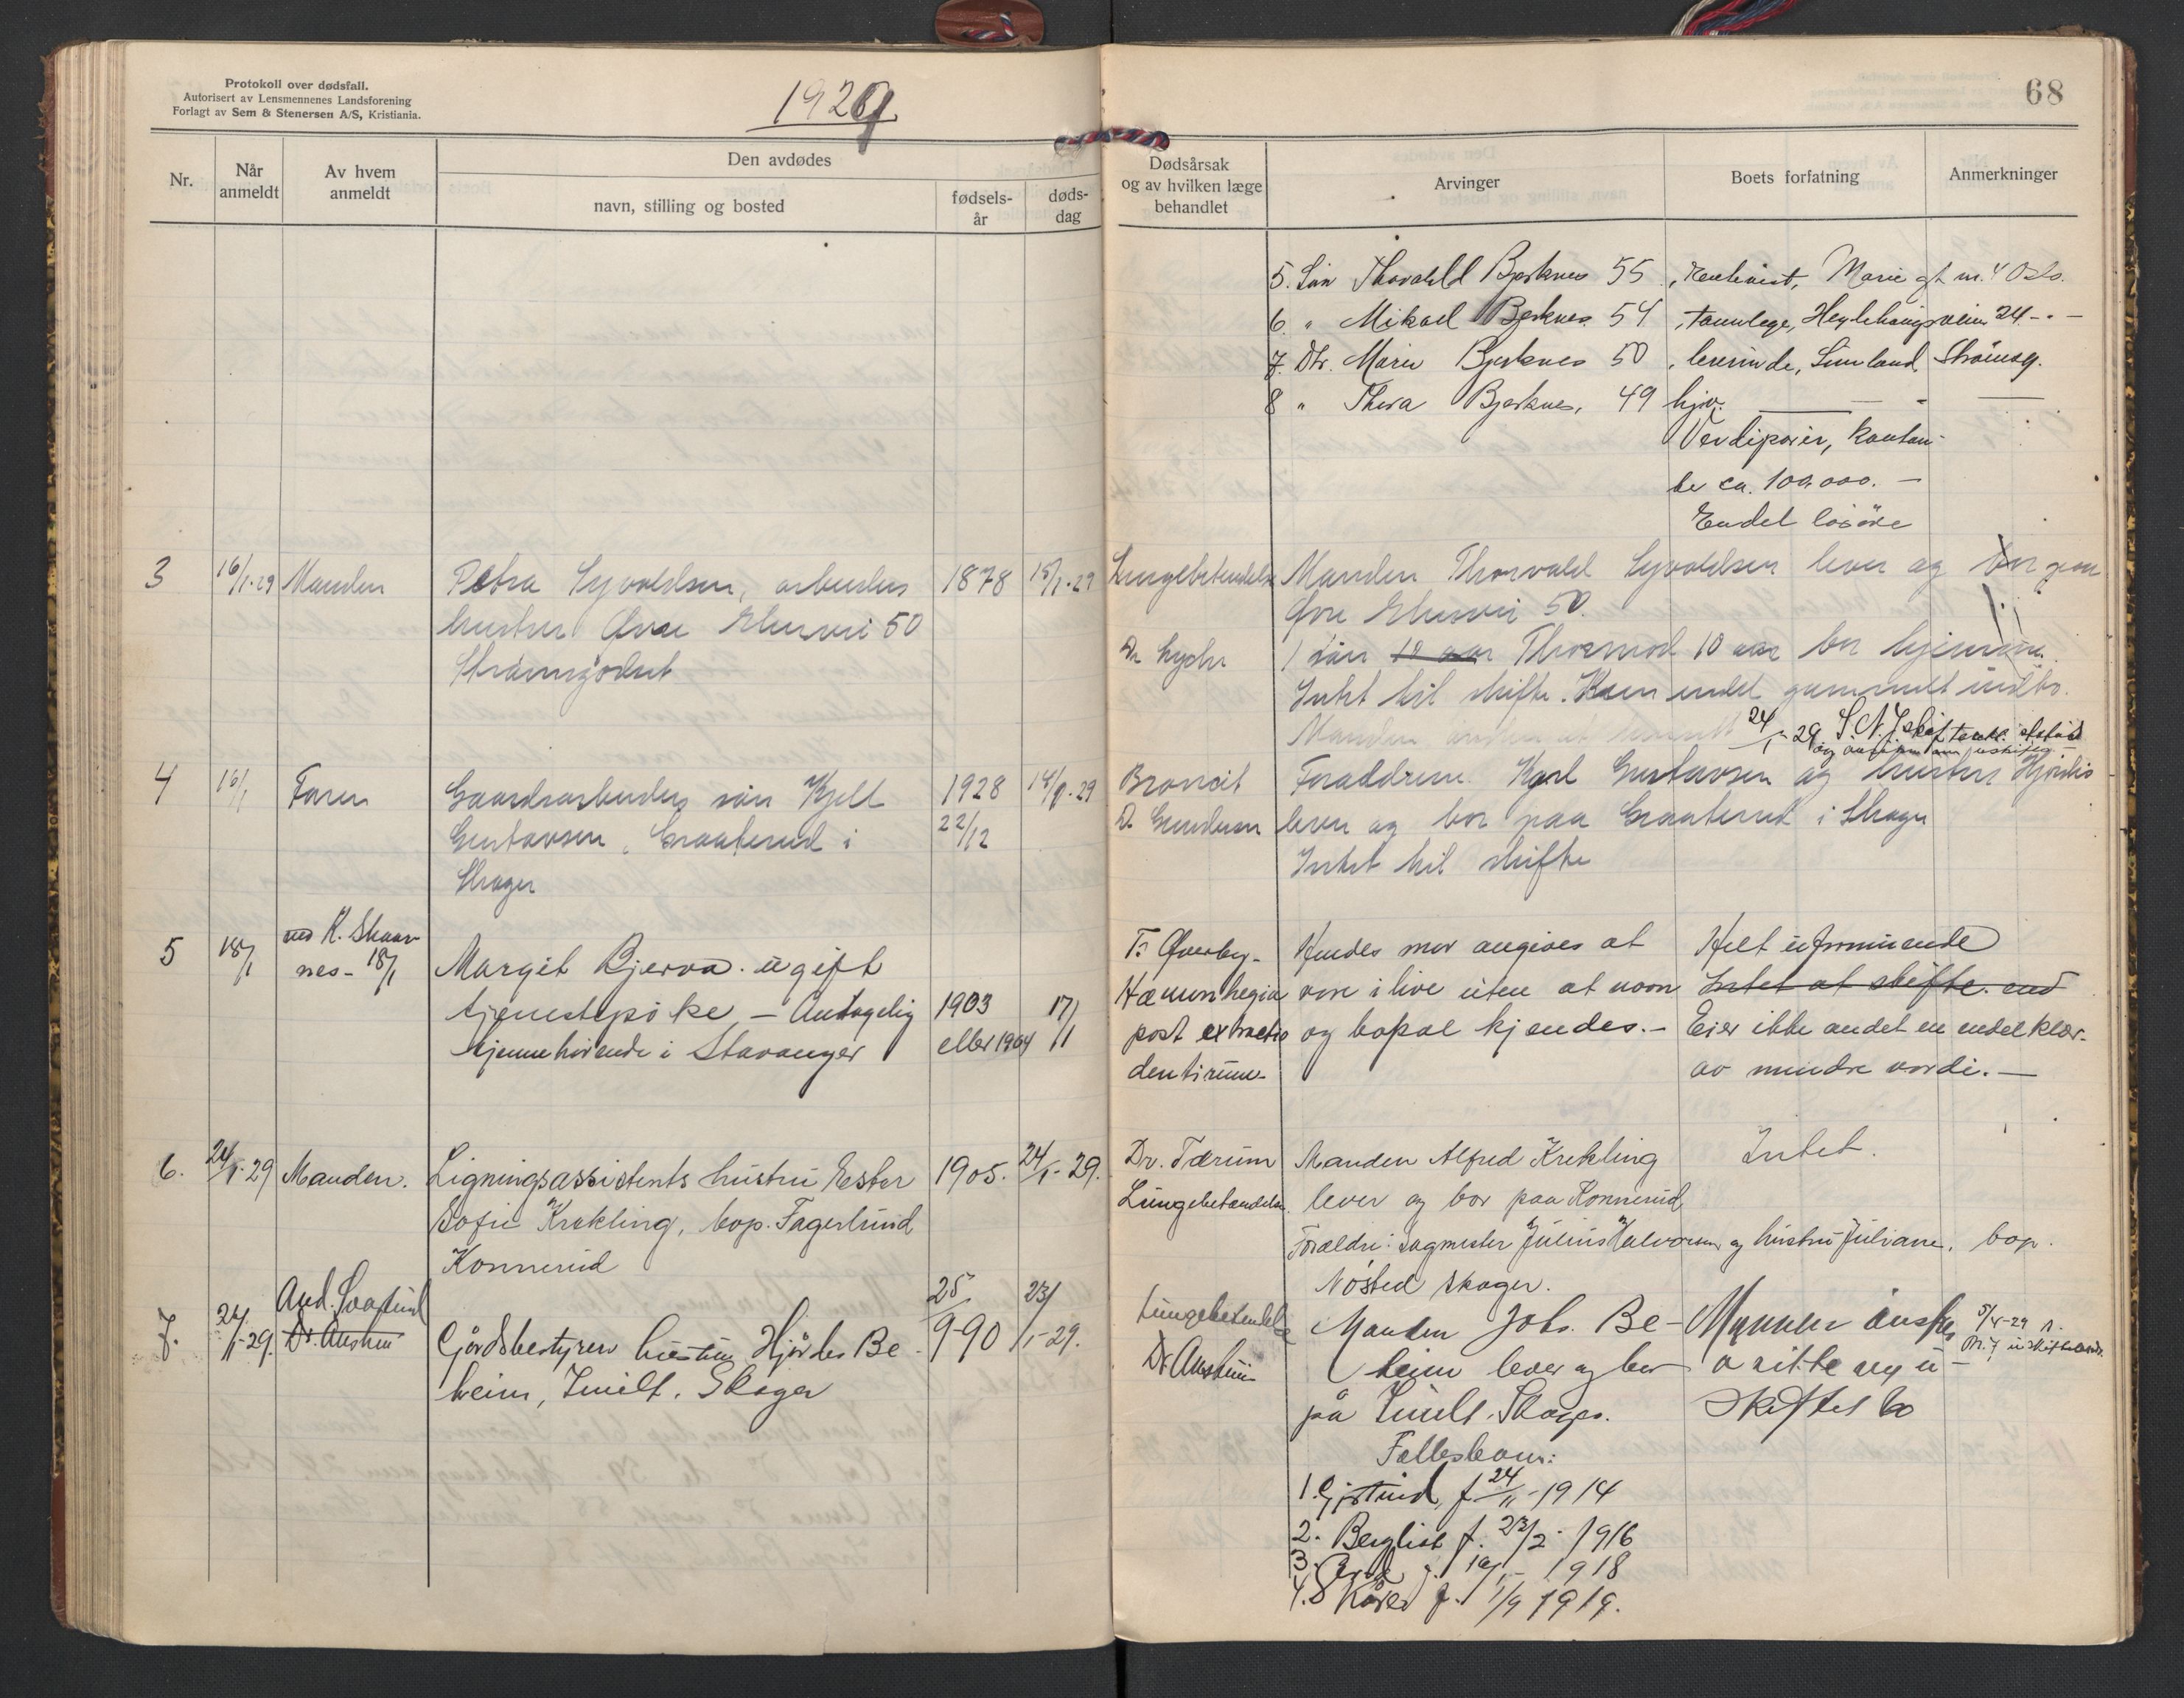 Protokoll over dødsfall.
Autorisert av Lensmennenes Landsforening
Forlagt av Sem & Stenersen A/S, Kristiania.
1929
68
Nr.
Når anmeldt
Av hvem anmeldt
Den avdødes
navn, stilling og bosted
fødsels-år
døds-dag
Dødsårsak og av hvilken læge behandlet
Arvinger
Boets forfatning
Anmerkninger
5. Søn Thorvald Bjerknes 55, Marie gt m. 4 Oslo.
6. " Mikael Bjerknes 54, tannlege, 24 - " -
7. Dtr. Marie Bjerknes 50, lærerinde, Strømsg.
8 " Thora Bjerknes, 49 hjv.
Verdipapirer, kontan-
ter ca. 100,000. -
Endel løsøre
3 16/1-29 Manden Petra Syvoldsen, arbeiders 1878 15/1-29 Lungebetendelse Manden Thorvald Syvoldsen lever og bor paa
hustru Øvre 50 Øvre 50.
Strømsgodset Dr 1 søn 10 aar Thormod 10 aar bor hjemme.
Intet til skifte. Kun endel gammelt indbo.
Manden 24/1-29
4 16/1 Faren Gaardsarbeiders søn Kjell 1928 14/1-29 Broncit Foraldrene Karl Gustavsen og hustru Hjørdis
Gustavsen, Graaterud i 22/12 Dr Gundersen lever og bor paa Graaterud i Skoger
Skoger Intet til skifte
5 18/1 ved K. Skaar-
nes - 18/1 Margit Bjerva. ugift T. Øverby- Hendes mor angives at Helt uformuende
tjenestepike, - Antagelig 1903 17/1 Hæmorrhegia være i live uten at navn Intet at skifte. end
hjemmehørende i Stavanger eller 1904 post extractio og bopæl kjendes. - Eier ikke andet en endel klær.
dentirum - av mindre verdi. -
6. 24/1-29 Manden. Ligningsassistents hustru Ester 1905. 24/1-29. Dr. Tærum Manden Alfred Krekling Intet.
Sofie Krekling, bop. Fagerlund Lungebetændelse. lever og bor paa Konnerud
Konnerud Forældre: Sagmester Julius Halvorsen og hustru Juliane, bop.
Nøsted Skoger.
7. 24/1-29. And. Svaplund 25/9-90 23/1-29. Lungebetendelse Manden Johs. Be- Mannen ønsker 5/4-29
Dr. Austein Gårdsbestyrers hustru Hjørdis Be- Dr. Austein heim lever og bor å sitte i u-
heim, Smilt. Skoger på Smilt. Skoger. skiftet bo
Fællesbarn:
1. Gjertrud, f. 24/11-1914
2. Bergliot f. 23/2-1916
3. f. 19/1-1918
4. Kåre f. 1/9 1919.